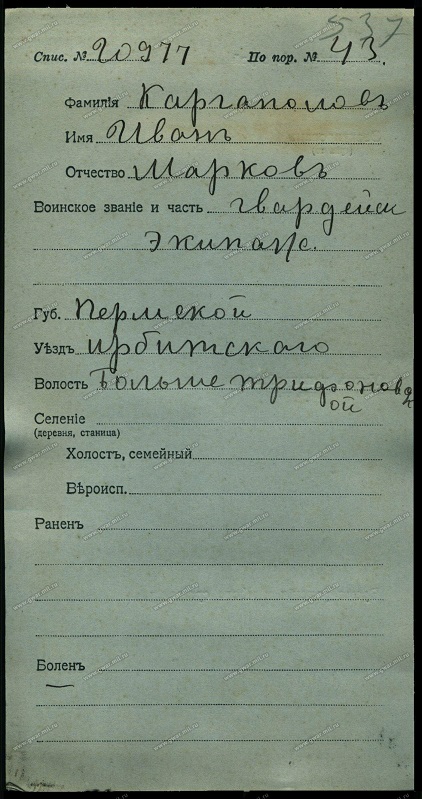 537
Спис. № 20977 По пор. № 43.
Фамилія Каргаполовъ
Имя Иванъ
Отчество Марковъ
Воинское званіе и часть гвардейск
Экипажъ.
Губ. Пермской
Уѣздъ Ирбитскаго
Волость Большетрифоновск
ой
Селеніе
(деревня, станица)
Холостъ, семейный
Вѣроисп.
Раненъ
Боленъ